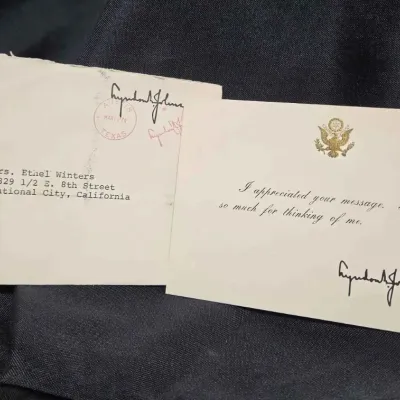 Lyndon B. Johnson
TEXAS
rs. Ethel Winters
829 1/2 E. 8th Street
ational City, California
I appreciated your message.
so much for thinking of me.
Lyndon B. Jo